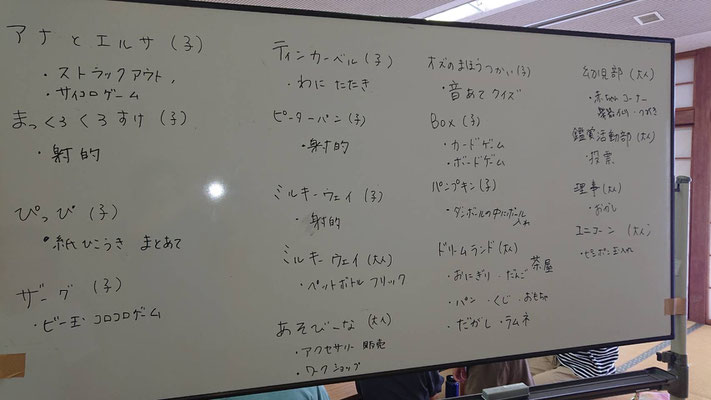 アナとエルサ(子)
・ストラックアウト、
・サイコロゲーム
まっくろくろすけ(子)
・射的
ぴっぴ(子)
・紙ひこうき まとあて
ザーグ(子)
・ビー玉・コロコロゲーム
ティンカーベル(子)
・わにたたき
ピーターパン(子)
・射的
ミルキーウェイ(子)
・射的
ミルキーウェイ(大人)
・ペットボトルフリック
あそびーな(大人)
・アクセサリー販売
・ワークショップ
オズのまほうつかい(子)
・音あてクイズ
Box(子)
・カードゲーム
・ボードゲーム
パンプキン(子)
・ダンボールの中にボール入れ
ドリームランド(大人)
・おにぎり・だんご 茶屋
・パン・くじ・おもちゃ
・だがし・ラムネ
幼児部(大人)
・赤ちゃんコーナー
鑑賞活動部(大人)
・投票
理事(大人)
・おかし
ユニコーン(大人)
・ピンポン玉入れ